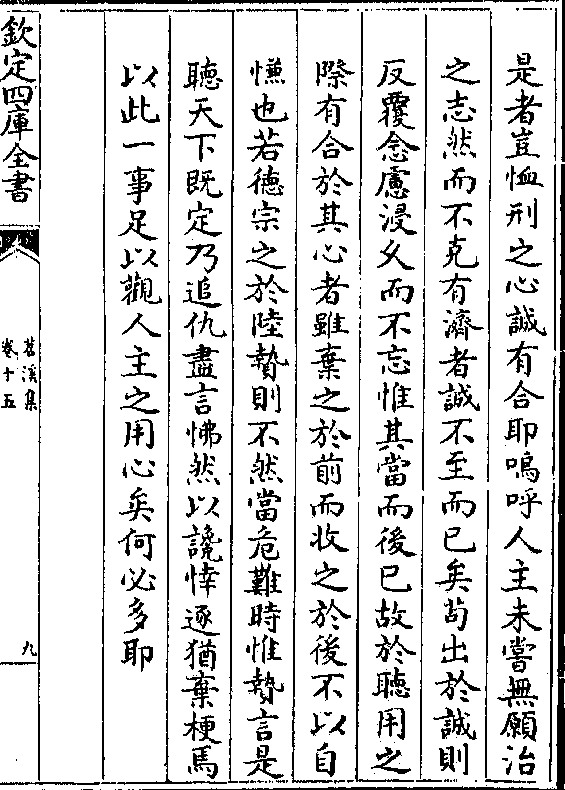 是者豈恤刑之心誠有合耶嗚呼人主未嘗無願治
之志然而不克有濟者誠不至而已矣苟出於誠則
反覆念慮浸久而不忘惟其當而後已故於聽用之
際有合於其心者雖棄之於前而收之於後不以自
慊也若徳宗之於陸贄則不然當危難時惟贄言是
聽天下既定乃追仇盡言怫然以讒悻逐猶棄梗焉
以此一事足以觀人主之用心矣何必多耶
欽定四庫全書
苕溪集
卷十五
九